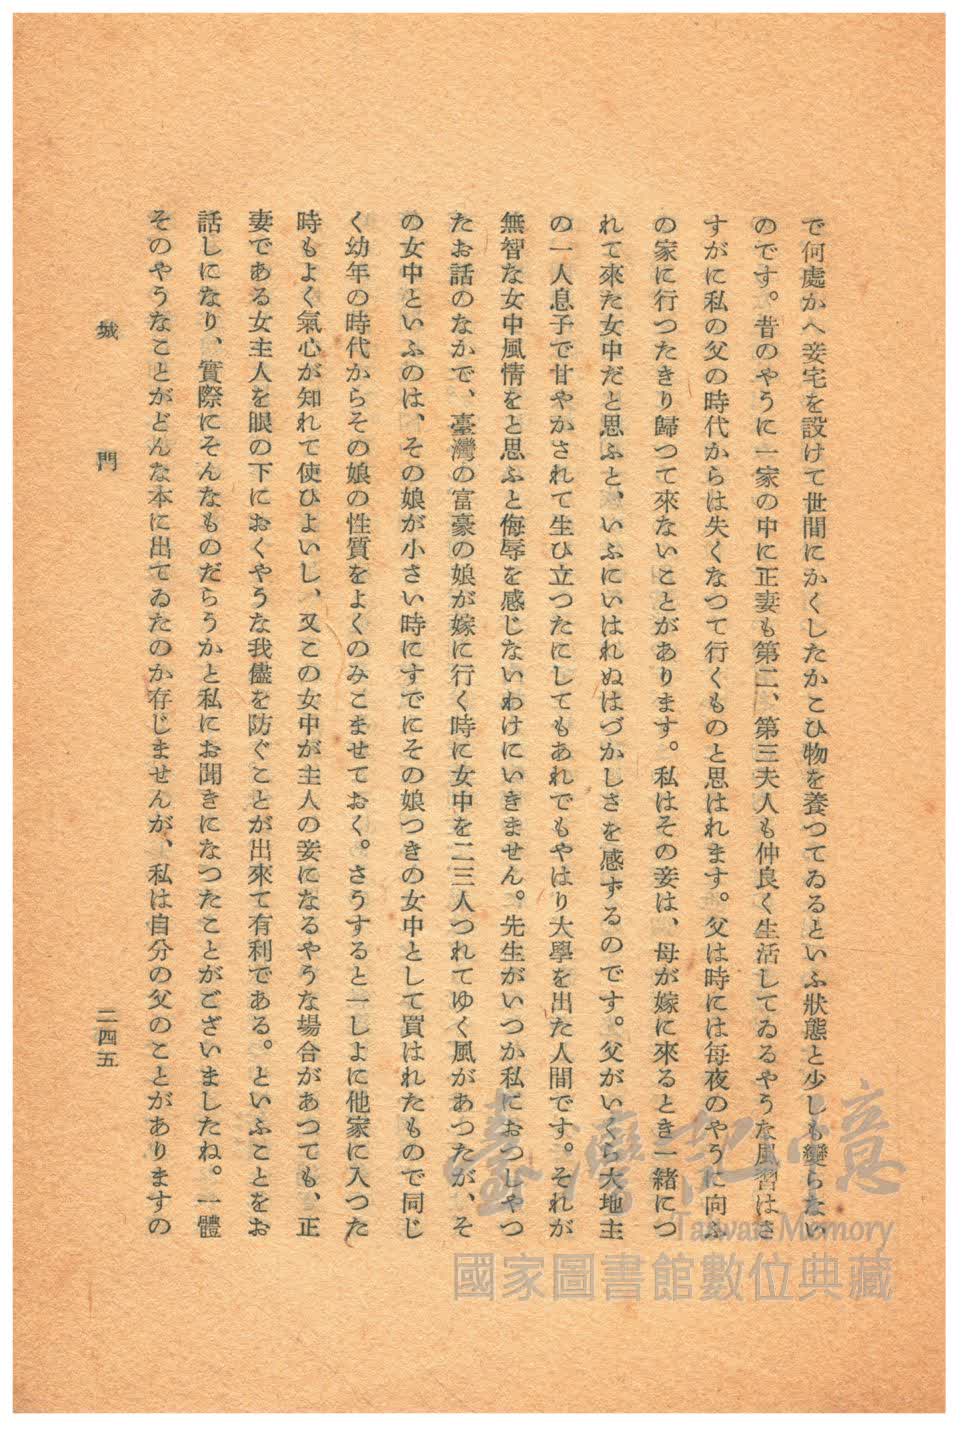 で何處かへ妾宅を設けて世間にかくしたかこひ物を養つてゐるといふ狀態と少しも變らない
のです。昔のやうに一家の中に正妻も第二、第三夫人も仲良く生活してゐるやうな風習はさ
すがに私の父の時代からは失くなつて行くものと思はれます。父は時には每夜のやうに向ふ
の家に行つたきり歸つて來ないことがあります。私はその妾は、母が嫁に來るとき一緒につ
れて來た女中だと思ふと、いふにいはれぬはづかしさを感ずるのです。父がいくら大地主
の一人息子で甘やかされて生ひ立つたにしてもあれでもやはり大學を出た人間です。それが
無智な女中風情をと思ふと侮辱を感じないわけにいきません。先生がいつか私におつしやつ
たお話のなかで、臺灣の富豪の娘が嫁に行く時に女中を二三人つれてゆく風があつたが、そ
の女中といふのは、その娘が小さい時にすでにその娘つきの女中として買はれたもので同じ
く幼年の時代からその娘の性質をよくのみこませておく。さうすると一しよに他家に入つた
時もよく氣心が知れて使ひよいし、又この女中が主人の妾になるやうな場合があつても、正
妻である女主人を眼の下におくやうな我儘を防ぐことが出來て有利である。といふことをお
話しになり、實際にそんなものだらうかと私にお聞きになつたことがございましたね。一體
そのやうなことがどんな本に出てゐたのか存じませんが、私は自分の父のことがありますの
城門
二四五
臺灣記憶
Taiwan Memory
國家圖書館數位典藏